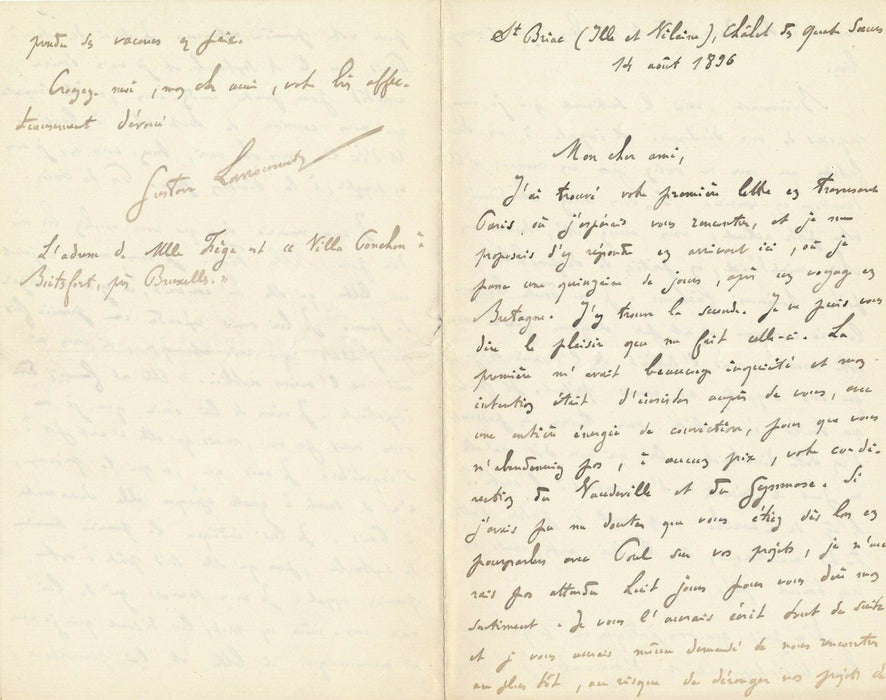 prendre des vacances en paix.
Croyez-moi, mon cher ami, votre bien affec-
tueusement dévoué
Gustave Larroumet
L'adresse de Mlle Frège est "Villa Ponchon à
Boitsfort, près Bruxelles."
St Briac (Ille et Vilaine), Châlet des Quatre Soeurs
14 août 1896
Mon cher ami,
J'ai trouvé votre première lettre en traversant
Paris, où j'espérais vous rencontrer, et je me
proposais d'y répondre en arrivant ici, où je
passe une quinzaine de jours, après un voyage en
Bretagne. J'y trouve la seconde. Je ne puis vous
dire le plaisir que me fait celle-ci. La
première m'avait beaucoup inquiété et mon
intention était d'insister auprès de vous, avec
une entière énergie de conviction, pour que vous
n'abandonniez pas, à aucun prix, votre co-di-
rection du Vaudeville et du Gymnase. Si
j'avais pu me douter que vous étiez dès lors en
pourparlers avec Porel sur vos projets, je n'au
rais pas attendu huit jours pour vous dire mon
sentiment. Je vous l'aurais écrit tout de suite
et je vous aurais même demandé de nous rencontrer
au plus tôt, au risque de déranger vos projets de